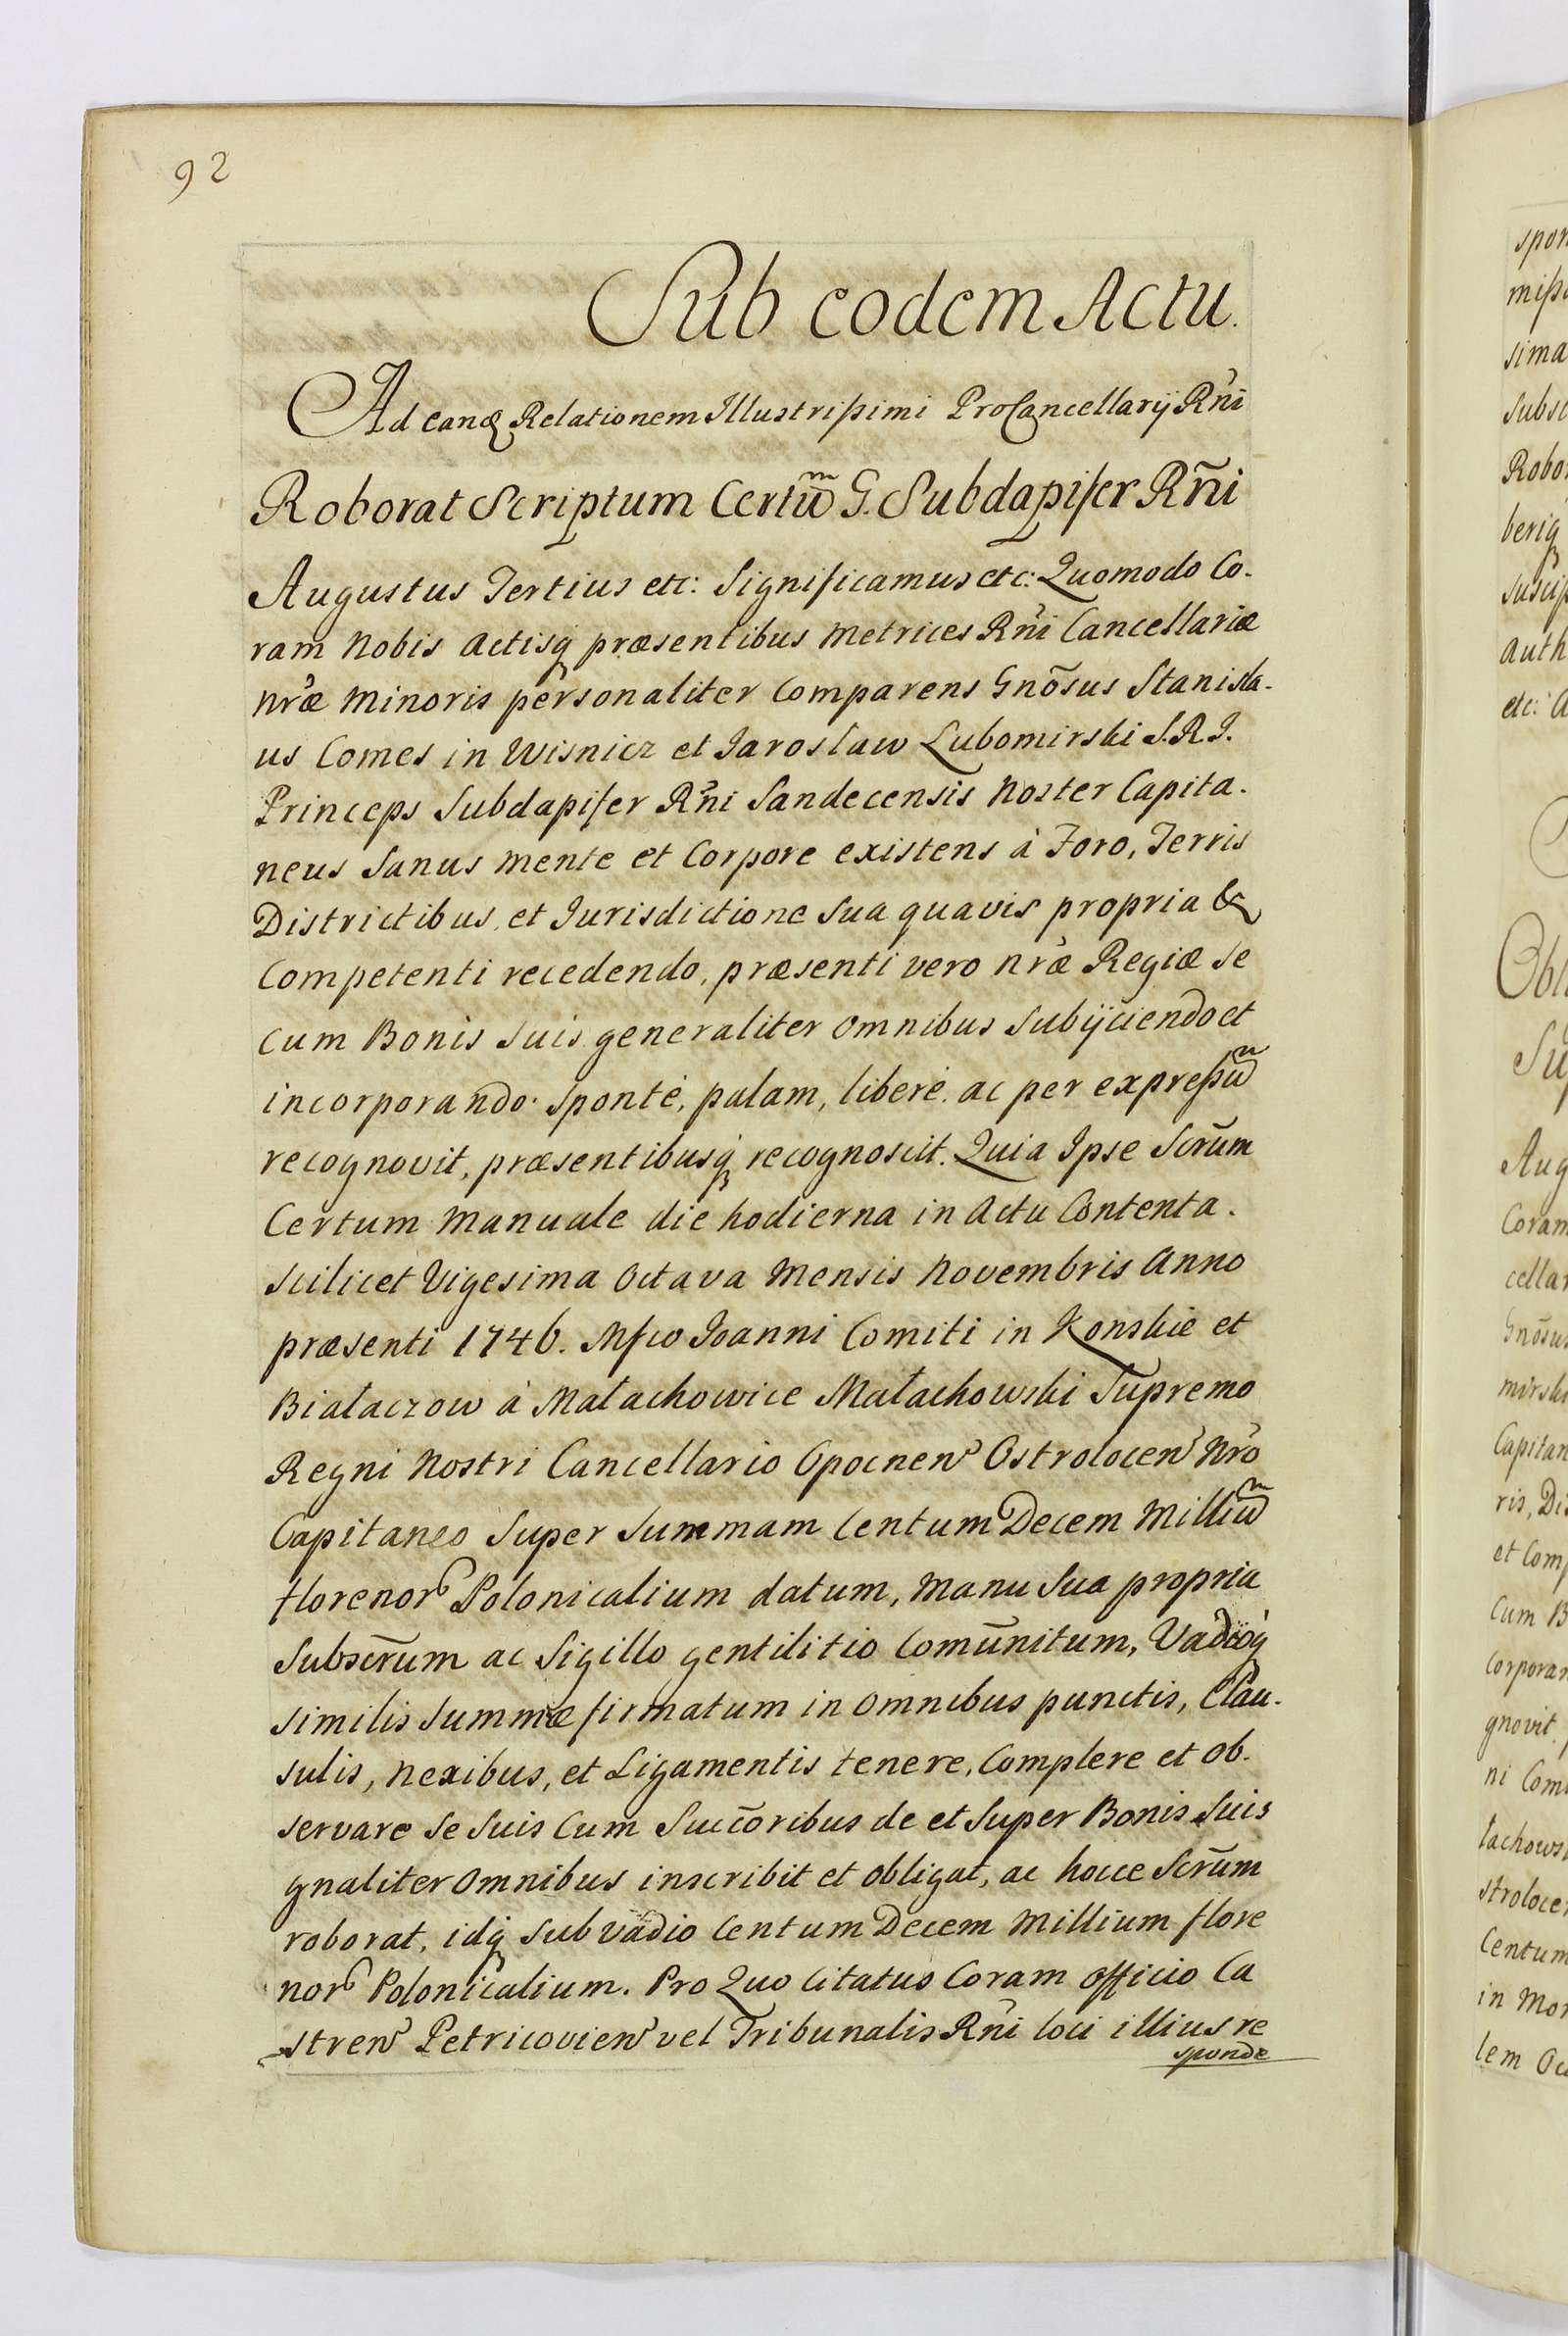 92
Sub eodem Actu.
Ad eanq̃ Relationem Illustrißimi ProCancellarij Rn̄i
Roborat Scriptum Certũm G. Subdapifer Rñi
Augustus Tertius etc: Significamus etc: Quomodo Co-
ram Nobis Actisq̨ præsentibus Metrices Rn̄i Cancellariæ
Nr̄æ Minoris personaliter Comparens Gnõsus Stanisla-
us Comes in Wisnicz et Jaroslaw Lubomirski S.R.I.
Princeps Subdapifer Rn̄i Sandecensis Noster Capita-
neus Sanus Mente et Corpore existens à Foro, Terris
Districtibus, et Iurisdictione Sua quavis propria &
Competenti recedendo, præsenti vero nr̄æ Regiæ se
cum Bonis suis generaliter omnibus Subijciendo et
incorporando. Sponté, palam, liberé. ac per expreßũm
recognovit, præsentibusq̨ recognoscit. Quia Ipse Scrũm
Certum Manuale die hodierna in Actu Contenta.
scilicet Vigesima Octava Mensis Novembris Anno
præsenti 1746. Mfco Joanni Comiti in Konskie et
Białaczow à Małachowice Małachowski Supremo
Regni Nostri Cancellario Opocnen̄ Ostrolocen̄ Nr̄o
Capitaneo Super Summam Centum Decem Milliũm
florenor̄ Polonicalium datum, Manu Sua propria
Subscrũm ac Sigillo gentilitio Comũnitum, Vadioq̨
similis Summæ firmatum in omnibus punctis, Clau-
sulis, Nexibus, et Ligamentis tenere, Complere et ob-
servare se Suis Cum Succõribus de et Super Bonis Suis
gnaliter omnibus inscribit et obligat, ac hocce Scrũm
roborat, idq̨ Sub vadio Centum Decem Millium flore
nor̄ Polonicalium. Pro Quo Citatus Coram officio Ca
stren̄ Petricovien̄ vel Tribunalis Rn̄i loci illius re
sponde
spon
miß
sima
Subsc
Robo
beriq̨
suscip
auth
etc: A
Obl
Su
Aug
Coram
cellar
Gnõsu
mirski
Capitan
ris, Dis
et Comp
Cum B
corporan
gnovit,
ni Comi
łachows
strolocen
Centum
in Mon
lem Oc